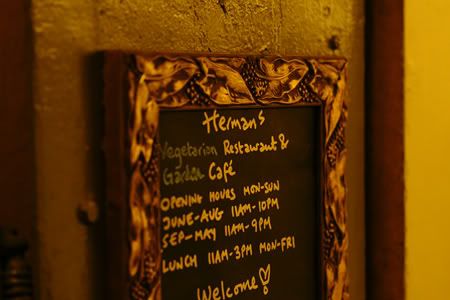 Hermans
Vegetarian Restaurant &
Garden Café
OPENING HOURS MON-SUN
JUNE-AUG 11AM-10PM
SEP-MAY 11AM-9PM
LUNCH 11AM-3PM MON-FRI
Welcome!